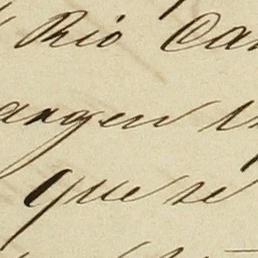 Rio Ca
argen
que se